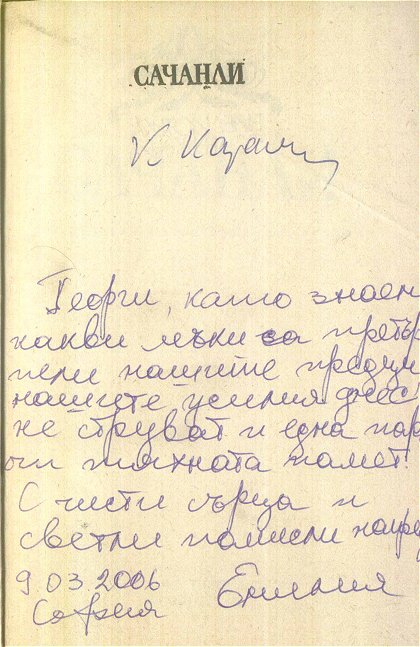 САЧАНЛИ
Георги, като знаем
какви мъки са претър
пели нашите предци
нашите усилия днес
не струват и една пар
тяхната памет!
С чисти сърца и
светли помисли напре
9 03 2006 Емилия
София